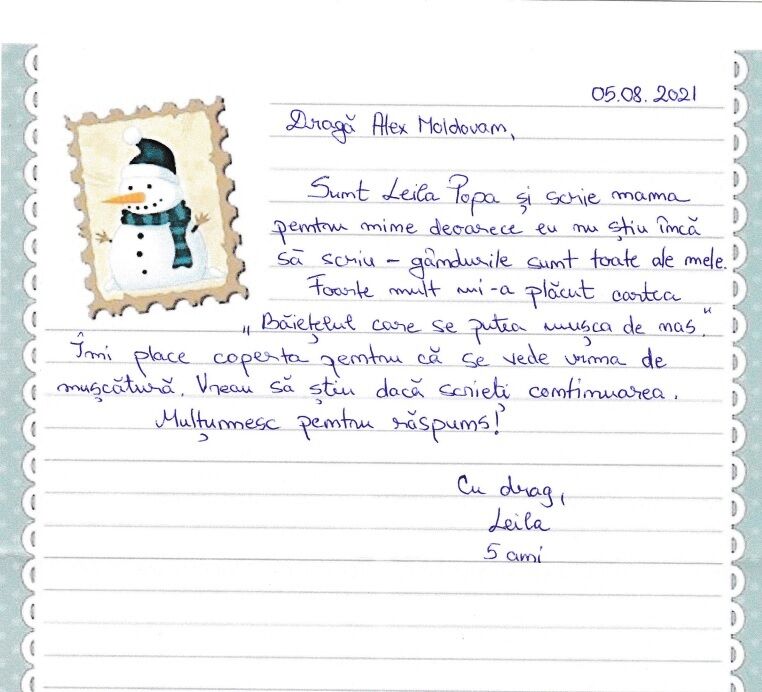 05.08.2021
Dragă Alex Moldovan,
Sunt Leila Popa și scrie mama
pentru mine deoarece eu nu știu încă
să scriu – gândurile sunt toate ale mele.
Foarte mult mi-a plăcut cartea
„Băiețelul care se putea mușca de nas."
Îmi place coperta pentru că se vede urma de
mușcătură. Vreau să știu dacă scrieți continuarea.
Mulțumesc pentru răspuns!
Cu drag,
Leila
5 ani